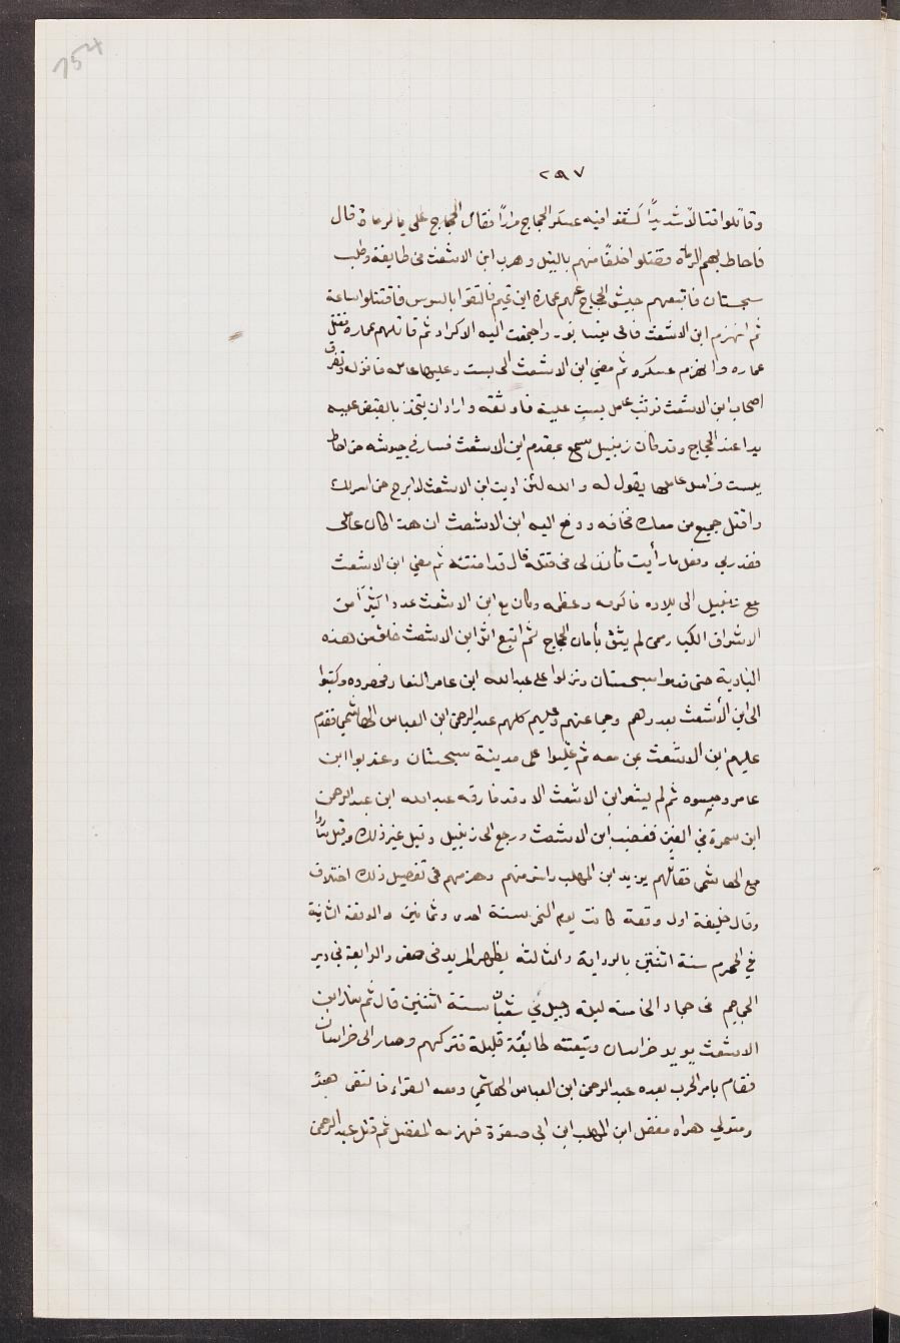 154
٢٩٧
وقاتلوا قتالاً شديداً كشفوا فيه عسكر الحجاج مراراً فقال الحجاج علي بالرماة قال
فاحاط بهم الرماة فقتلوا خلقاً منهم بالنبل وهرب ابن الاشعث في طايفة وطلب
سجستان فاتبعهم جيش الحجاج عليهم عمارة ابن تميم فالتقوا بالسوس فاقتتلوا ساعة
ثم انهزم ابن الاشعث فاتى سابور واجتمعت اليه الاكراد ثم قاتلهم عماره فقتل
عماره وانهزم عسكره ثم مضى ابن الاشعث الى بست وعليها عامله فانزله وتفرق
اصحاب ابن الاشعث فوثب عامل بست عليه فاوثقه واراد ان يتخذ بالقبض عليه
يدا عند الحجاج وقد كان زنبيل سمع بمقدم ابن الاشعث فسار في جيوشه حتى احاط
ببست فراسل عاملها يقول له والله لئن اذيت ابن الاشعث لا ابرح حتى استنزلك
واقتل جميع من معك فخافه ودفع اليه ابن الاشعث ان هذا كان عاملى
فغدر بي وفعل ما رأيت فأذن لى فى قتله قال قد امنته ثم مضى ابن الاشعث
مع زنبيل الى بلاده فاكرمه وعظمه وكان مع ابن الاشعث عددا كثيراً من
الاشراف الكبار ممن لم يثق بأمان الحجاج ثم اتبع اثر ابن الاشعث خلق من هذه
البادية حتى قدموا سجستان ونزلوا على عبدالله ابن عامر النعار فحصروه وكتبوا
الى ابن الأشعث بعددهم وجماعتهم وعليهم كلهم عبدالرحمن ابن العباس الهاشمي فقدم
عليهم ابن الاشعث بمن معه ثم غلبوا على مدينة سجستان وعذبوا ابن
عامر وحبسوه ثم لم يشعر ابن الاشعث الا وقد فارقه عبدالله ابن عبدالرحمن
ابن سمرة في الفين فغضب ابن الاشعث ورجع الى زنبيل وقيل غير ذلك
مع الهاشمى فقاتلهم يزيد ابن المهلب واسر منهم وهزمهم فى تفصيل ذلك اختلاف
وقال خليفة اول وقعة كانت يوم النحر سنة احدى وثمانين والوقعة الثانية
في المحرم سنة اثنتين بالزواية والثالثة بظهر المربد فى صفر والرابعة في دير
الجماجم فى جماد الخامسة ليلة دجيل في شعبان سنة اثنتين قال ثم سار ابن
الاشعث يريد خراسان وتبعته طائفة قليلة فتركهم وصار الى خراسان
فقام بامر الحرب بعده عبدالرحمن ابن العباس الهاشمي ومعه القراء فالتقى هو
ومتولي هراه مفضل ابن المهلب ابن ابى صفرة فهزمه المفضل ثم قتل عبدالرحمن